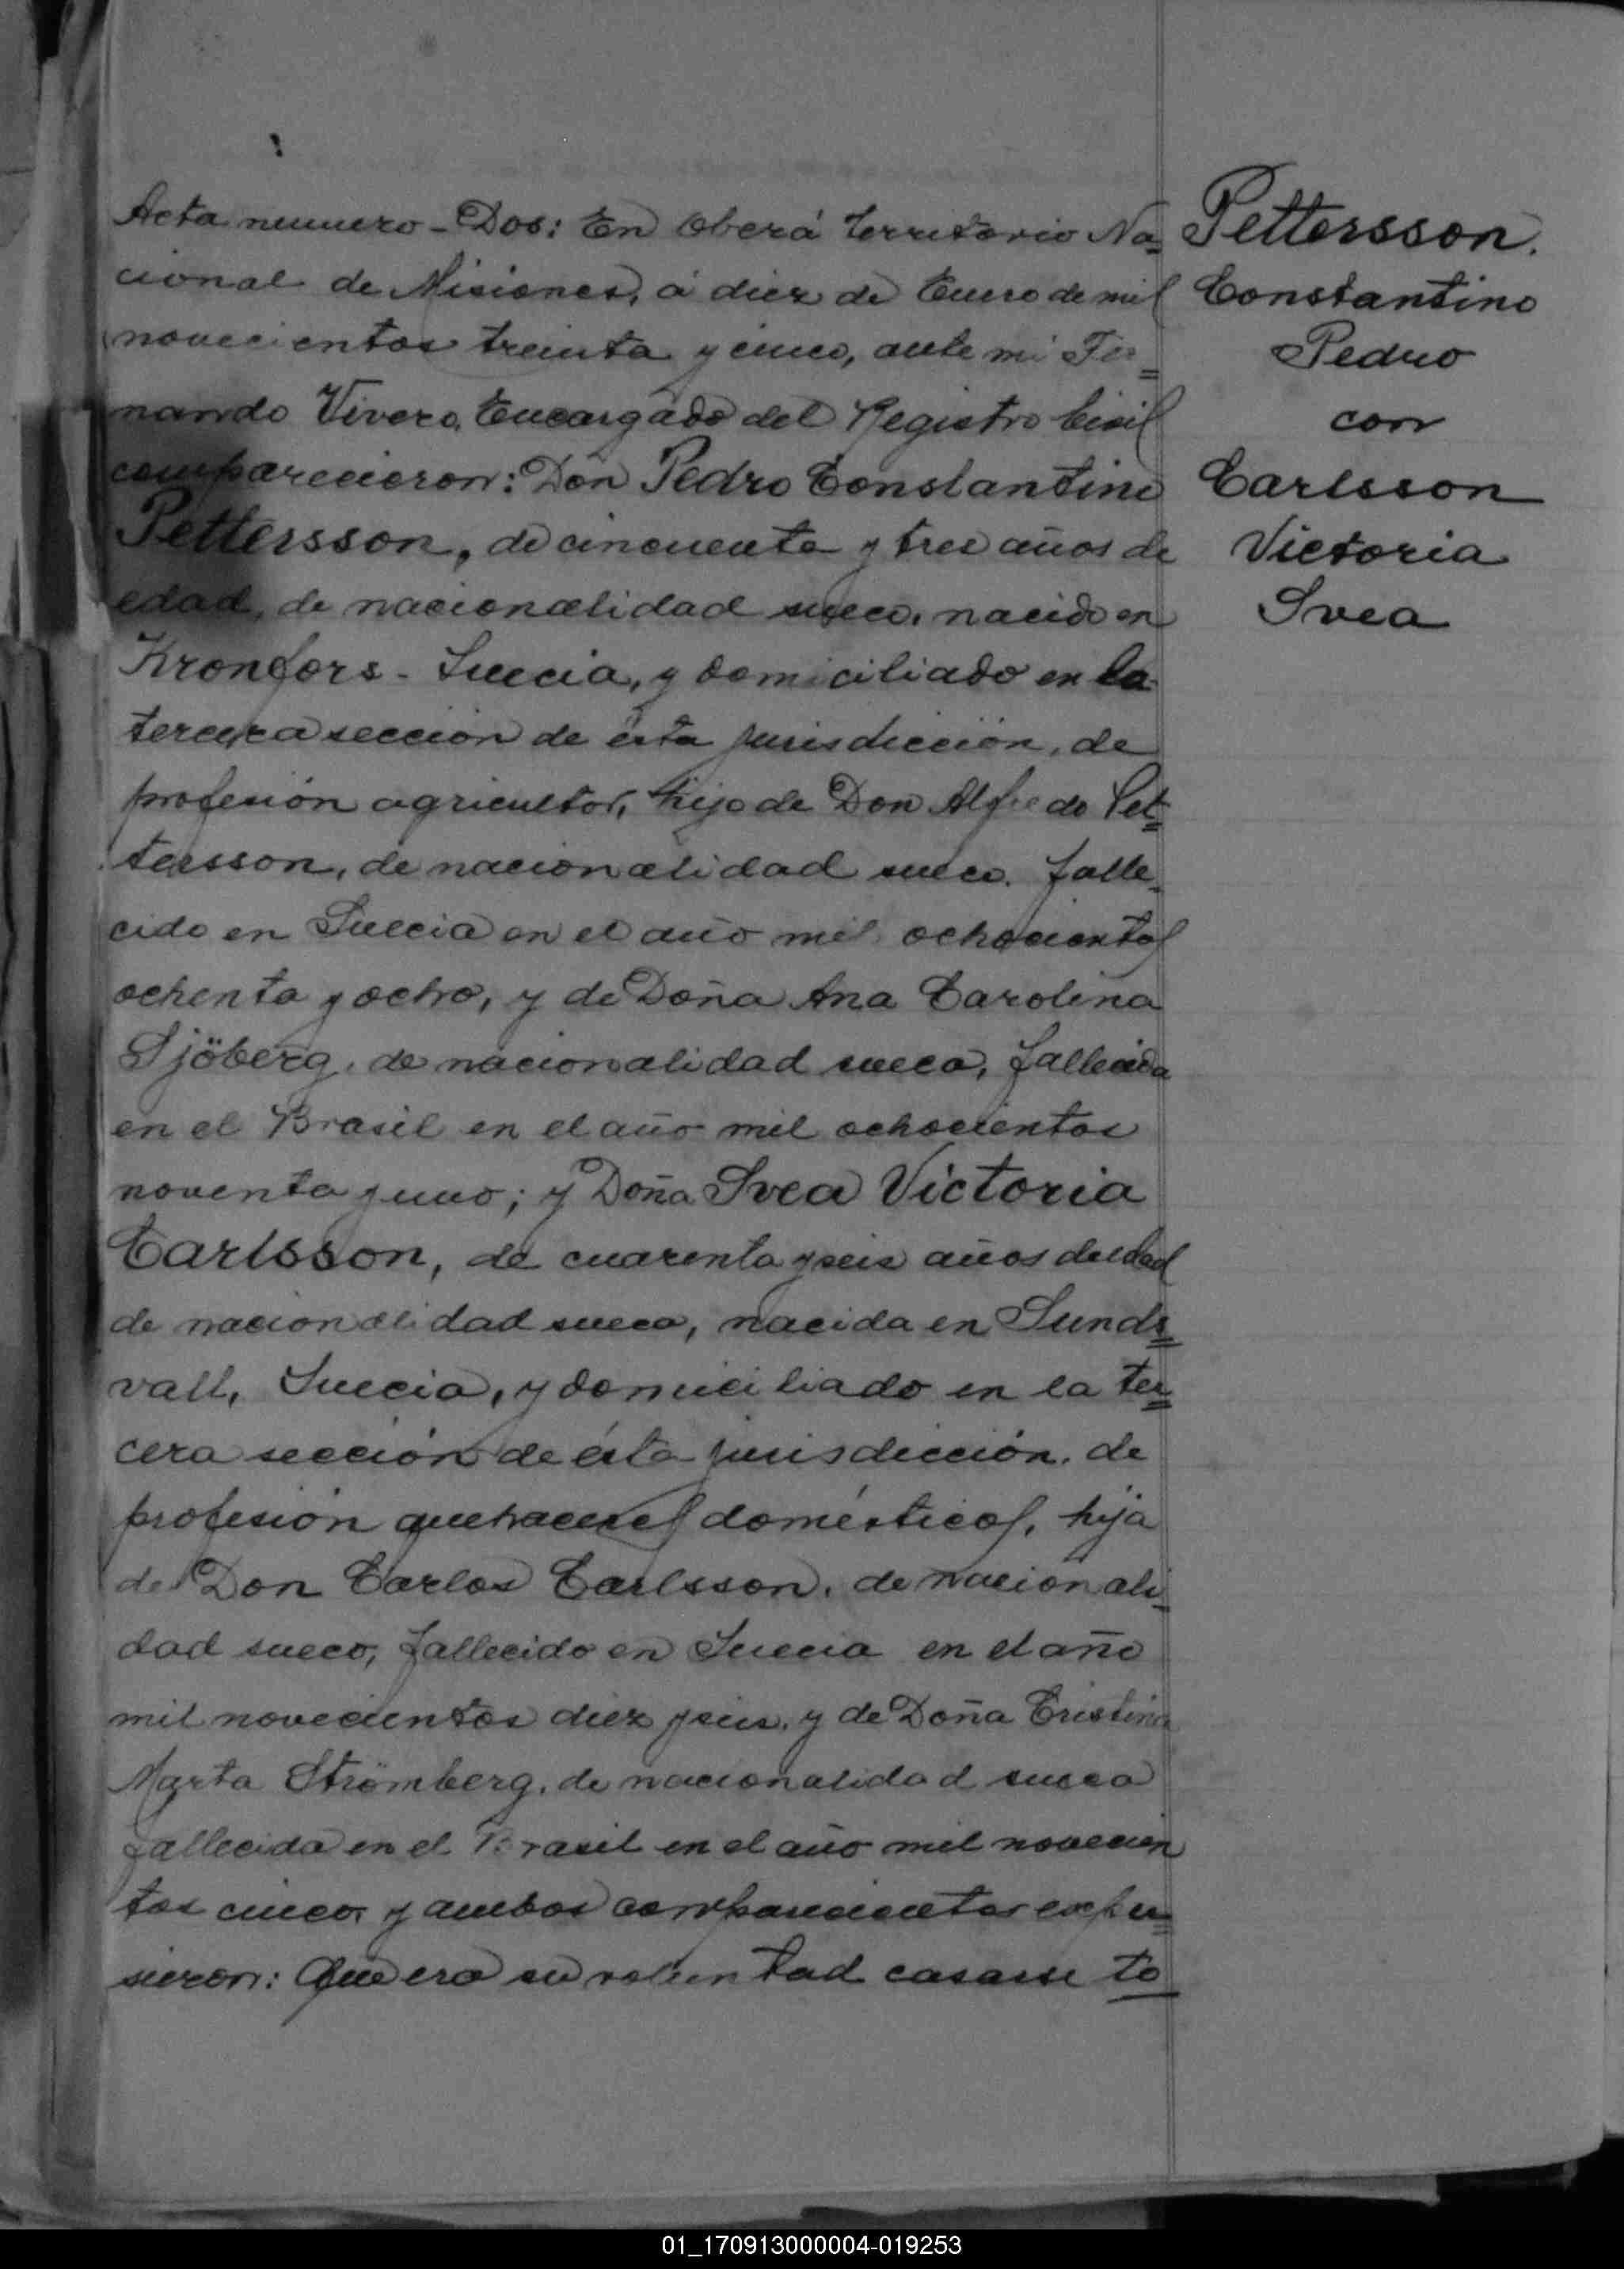 Acta numero - Dos: En Oberá Territorio Na=
cional de Misiones, á diez de Enero de mil
novecientos treinta y cinco, ante mi Fer=
nando Vivero, Encargado del Registro Civil
comparecieron: Don Pedro Constantino
Pettersson, de cincuenta y tres años de
edad, de nacionalidad sueco, nacido en
Kronfors - Suecia, y domiciliado en la
tercera sección de ésta jurisdicción, de
profesión agricultor, hijo de Don Alfredo Pet=
tersson, de nacionalidad sueco. falle-
cido en Suecia en el año mil ochocientos
ochenta y ocho, y de Doña Ana Carolina
Sjöberg, de nacionalidad sueca, fallecida
en el Brasil en el año mil ochocientos
noventa y uno; y Doña Svea Victoria
Carlsson, de cuarenta y seis años de edad
de nacionalidad sueca, nacida en Sunds=
vall, Suecia, y domiciliado en la ter=
cera sección de ésta jurisdicción, de
profesión quehaceres domésticos, hija
de Don Carlos Carlsson, de nacionali-
dad sueco, fallecido en Suecia en el año
mil novecientos diez y seis, y de Doña Cristina
Marta Strömberg, de nacionalidad sueca
fallecida en el Brasil en el año mil novecien
tos cinco, y ambos comparecientes expu=
sieron: Que era su voluntad casarse to
Pettersson.
Constantino
Pedro
con
Carlsson
Victoria
Svea
01_170913000004-019253